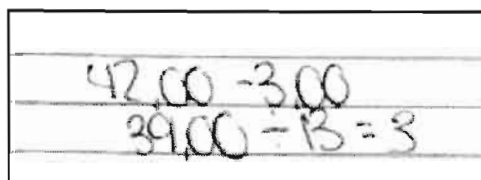 42.00 - 3.00
39.00 ÷ 13 = 3